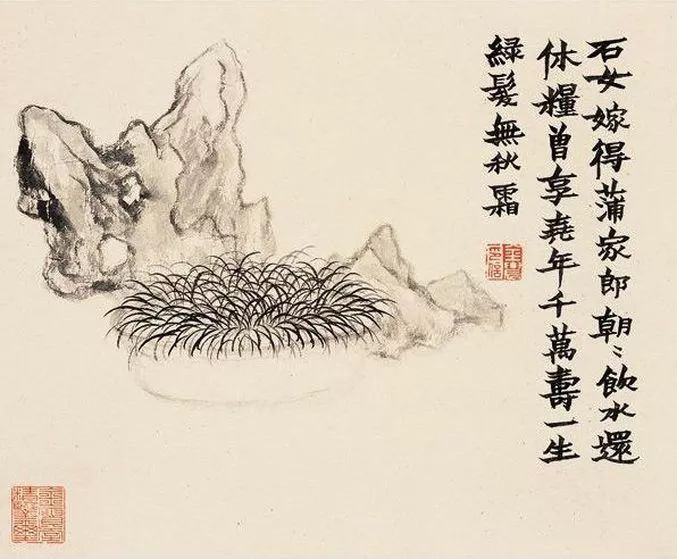 石女嫁得蒲家郎朝〻飲水還
休糧曾享堯年千萬壽一生
綠髮無秋霜